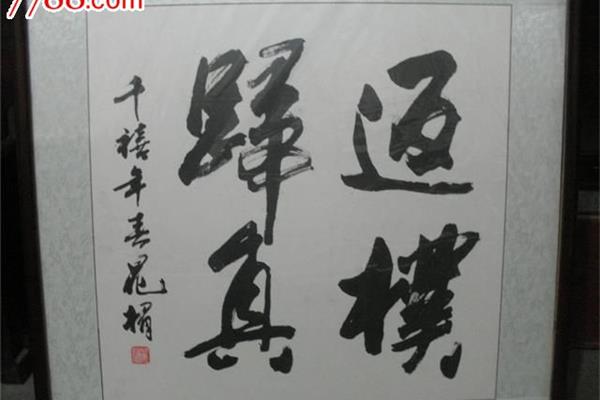 7788.com
返樸
歸真
千禧年春晁楣